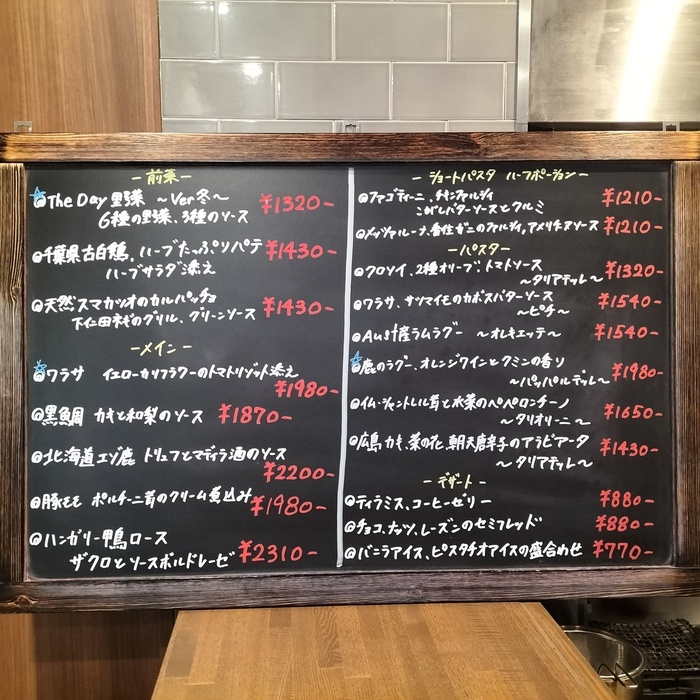 －前菜－
◎The Day 野菜 ～Ver冬～ ¥1320－
6種の野菜、3種のソース
◎千葉県古白鶏、ハーブたっぷりパテ ¥1430－
ハーブサラダ添え
◎天然スマカツオのカルパッチョ ¥1430－
下仁田ネギのグリル、グリーンソース
－メイン－
◎ワラサ イエローカリフラワーのトマトリゾット添え
¥1980－
◎黒鯛 カキと和梨のソース ¥1870－
◎北海道エゾ鹿 トリュフとマディラ酒のソース
¥2200－
◎豚モモ ポルチーニ茸のクリーム煮込み ¥1980－
◎ハンガリー鴨ロース
ザクロとソースボルドレーゼ ¥2310－
－ショートパスタ ハーフポーション－
◎ファゴティーニ、チキンファルシィ ¥1210－
こがしバターソースとクルミ
◎メッツァルーナ、香住ガニのファルシィ、アメリケーヌソース ¥1210－
－パスタ－
◎クロソイ、2種オリーブ、トマトソース ¥1320－
～タリアテッレ～
◎ワラサ、サツマイモのカボスバターソース ¥1540－
～ピチ～
◎Aust産ラムラグー ～オレキエッテ～ ¥1540－
◎鹿のラグー、オレンジワインとクミンの香り ¥1980－
～パッパルデッレ～
◎イム・ジャントレル茸と水菜のペペロンチーノ ¥1650－
～タリオリーニ～
◎広島カキ、菜の花、朝天唐辛子のアラビアータ ¥1430－
～タリアテッレ～
－デザート－
◎ティラミス、コーヒーゼリー ¥880－
◎チョコ、ナッツ、レーズンのセミフレッド ¥880－
◎バニラアイス、ピスタチオアイスの盛合わせ ¥770－